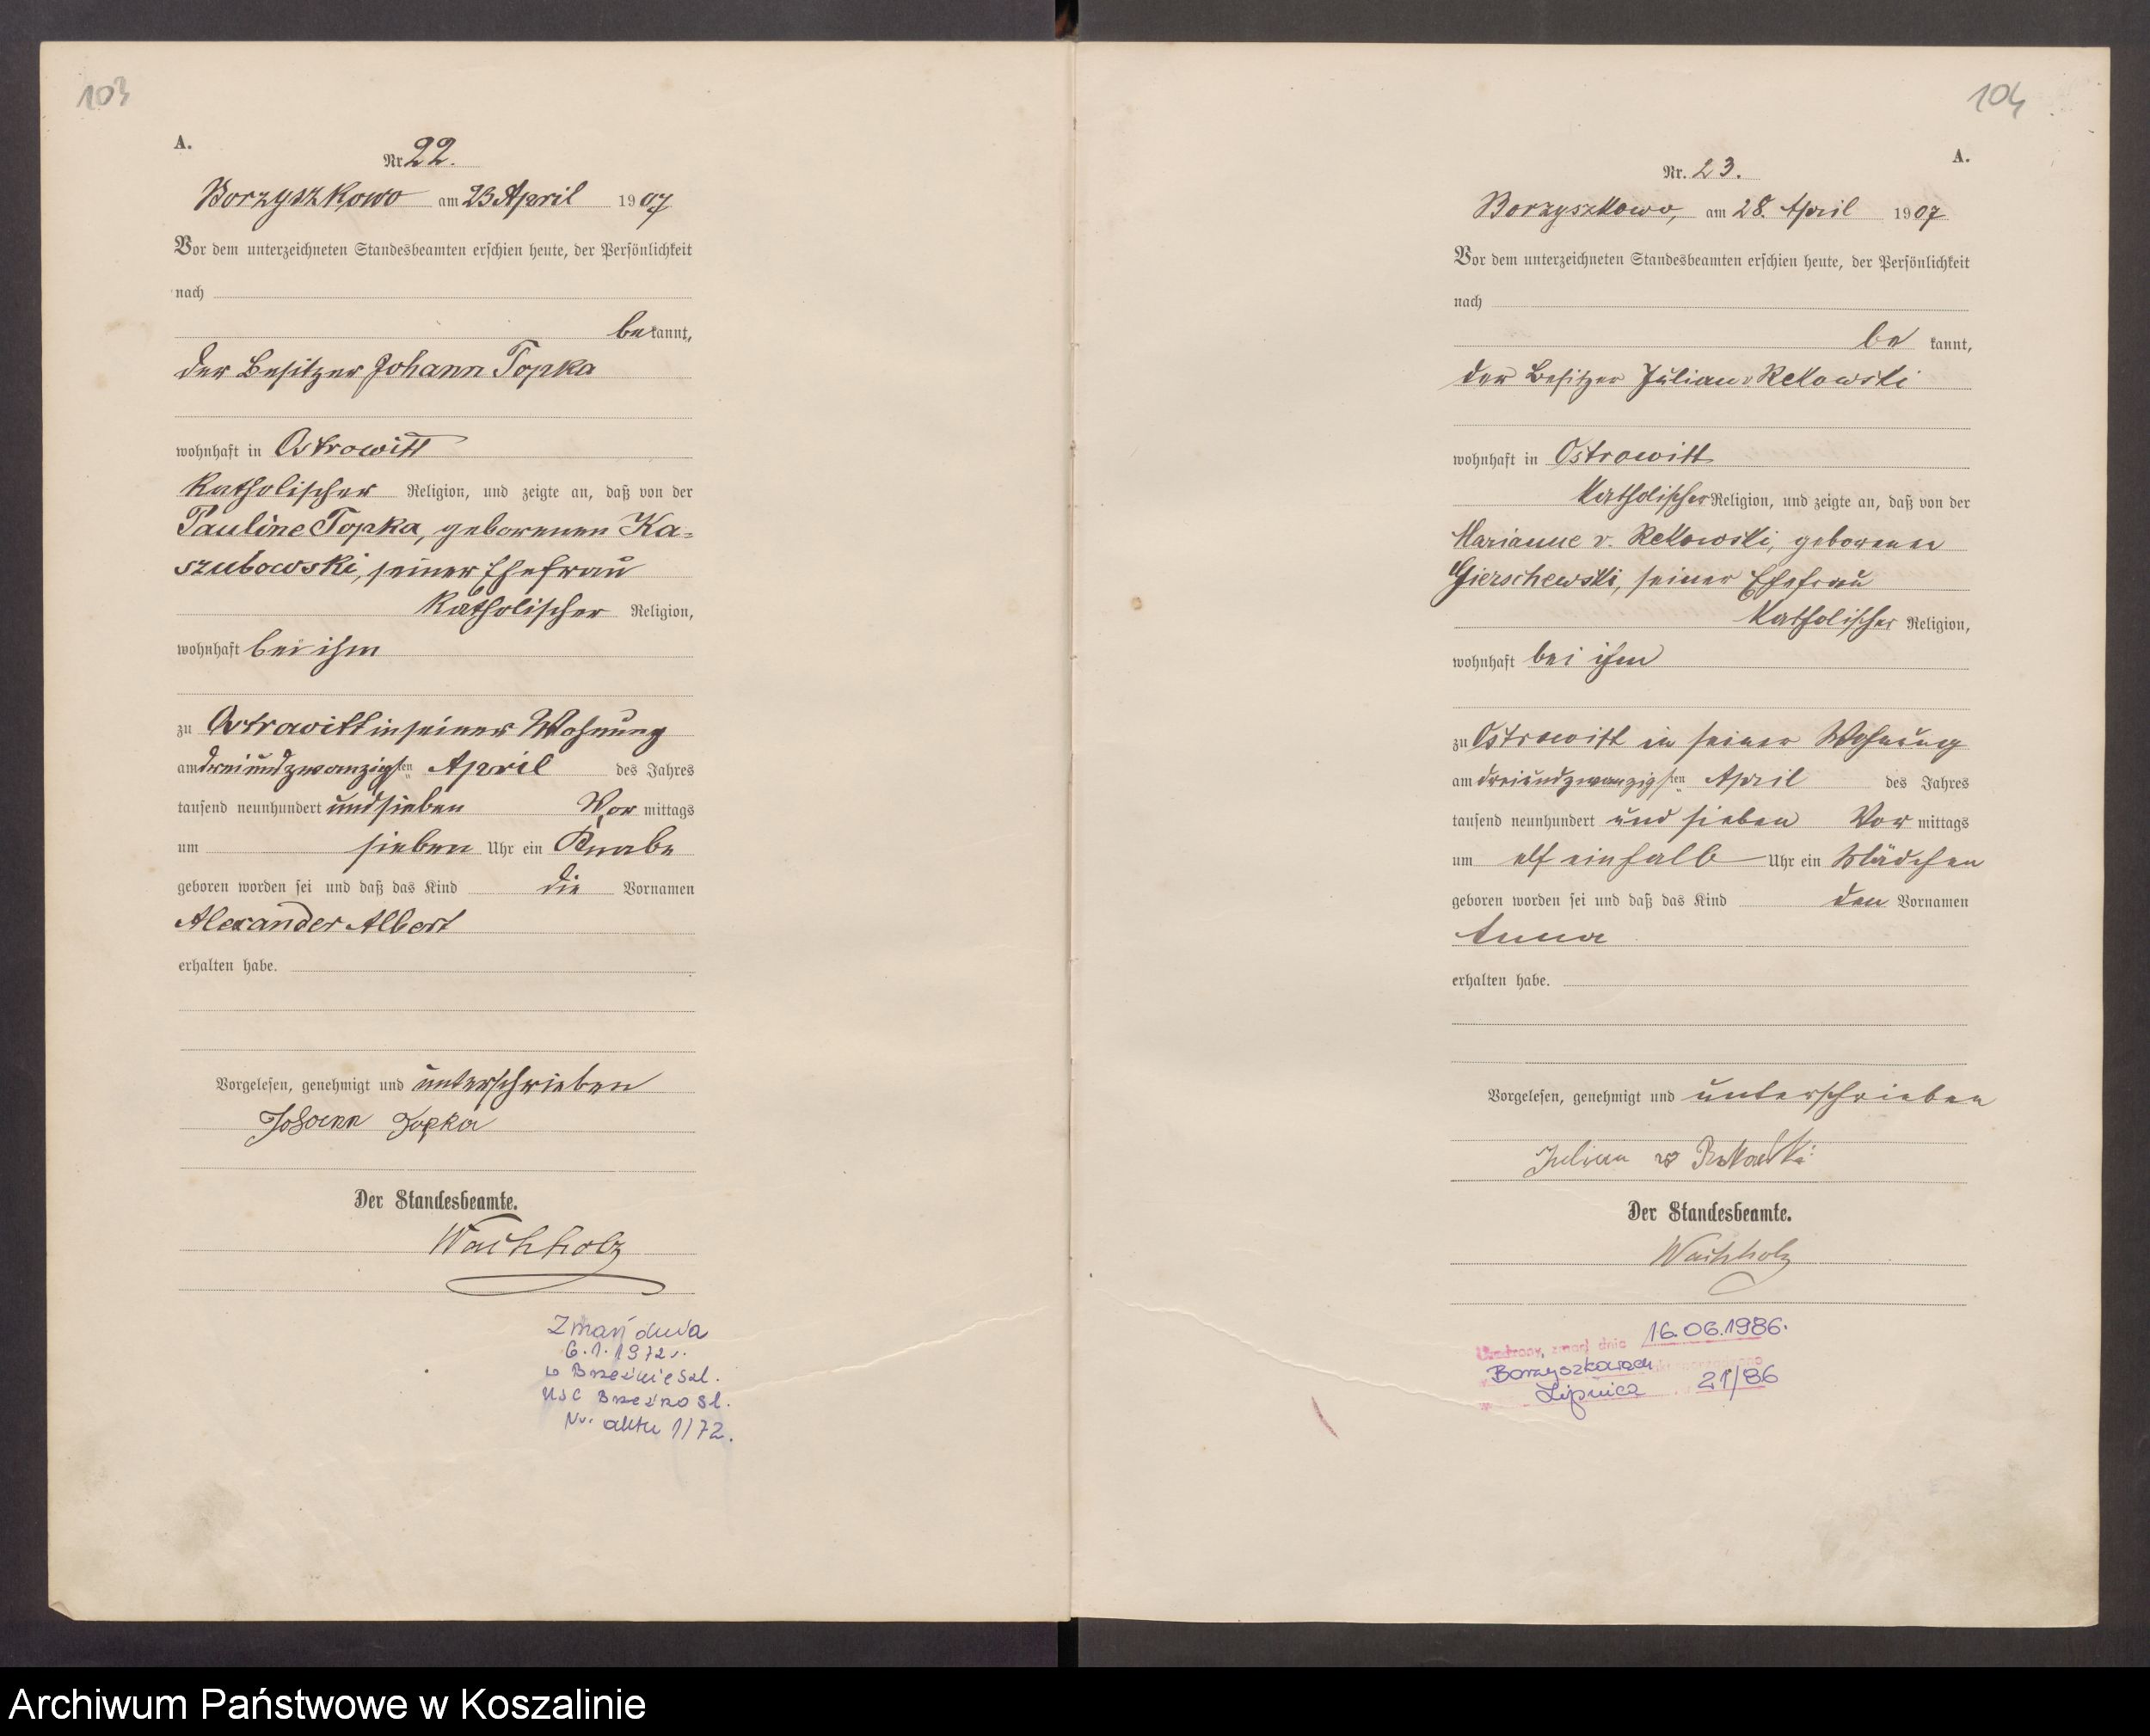 103
A.
Nr. 22.
Borzyszkowo am 23 April 1907
Vor dem unterzeichneten Standesbeamten erschien heute, der Persönlichkeit
nach
be kannt,
der Besitzer Johann Topka
wohnhaft in Ostrowitt
katholischer Religion, und zeigte an, daß von der
Pauline Topka, geborenen Ka=
szubowski, seiner Ehefrau
katholischer Religion,
wohnhaft bei ihm
zu Ostrowitt in seiner Wohnung
am dreiundzwanzigsten April des Jahres
tausend neunhundert und sieben Vor mittags
um sieben Uhr ein Knabe
geboren worden sei und daß das Kind die Vornamen
Alexander Albert
erhalten habe.
Vorgelesen, genehmigt und unterschrieben
Johann Topka
Der Standesbeamte.
Wachholz
Zmarł dnia
6.1.1972r.
w Brzeźnie Szl.
USC Brzeźno Szl.
Nr. aktu 1/72.
104
A.
Nr. 23.
Borzyszkowo, am 28. April 1907
Vor dem unterzeichneten Standesbeamten erschien heute, der Persönlichkeit
nach
be kannt,
der Besitzer Julian v Rekowski
wohnhaft in Ostrowitt
katholischer Religion, und zeigte an, daß von der
Marianne v. Rekowski, geborenen
Gierschewski, seiner Ehefrau
katholischer Religion,
wohnhaft bei ihm
zu Ostrowitt in seiner Wohnung
am dreiundzwanzigsten April des Jahres
tausend neunhundert und sieben Vor mittags
um elf einhalb Uhr ein Mädchen
geboren worden sei und daß das Kind den Vornamen
Anna
erhalten habe.
Vorgelesen, genehmigt und unterschrieben
Julian v Rekowski
Der Standesbeamte.
Wachholz
zmarł dnia 16.06.1986.
Borzyszkowach
Lipnica 21/86
Archiwum Państwowe w Koszalinie